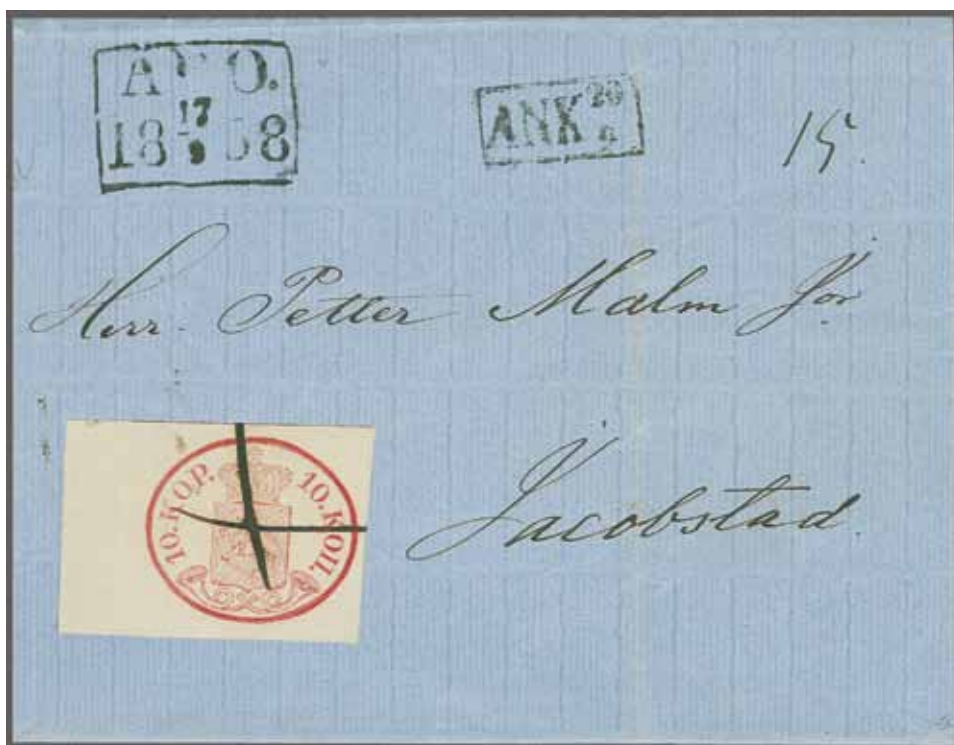 ABO.
18 17/9 58
ANK 20
15.
Herr Petter Malm Jor
Jacobstad.
10.KOP. 10.КОП.